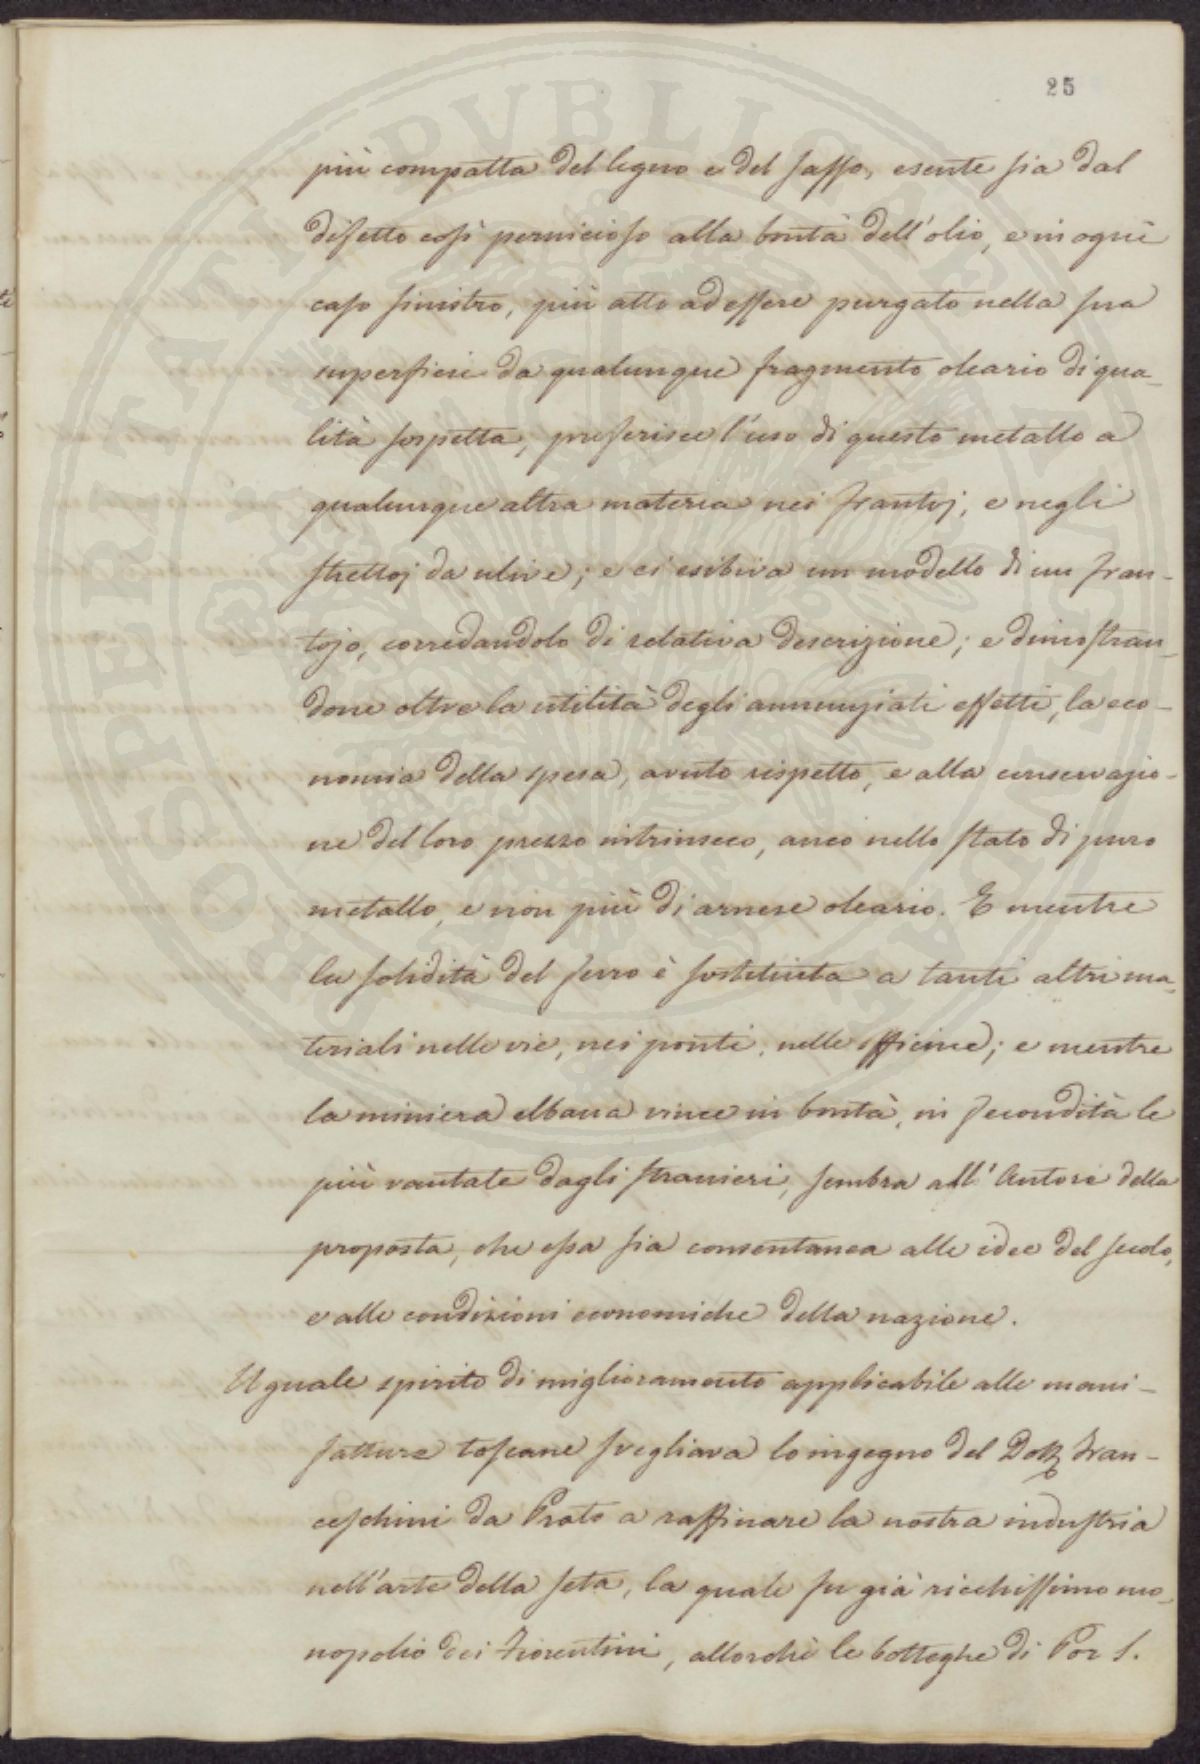 25
più compatta del legno e del sasso, esente sia dal
difetto così pernicioso alla bontà dell'olio, e in ogni
caso sinistro, più atto ad essere purgato nella sua
superficie da qualunque fragmento oleario di qua-
lità sospetta, preferisce l'uso di questo metallo a
qualunque altra materia nei frantoj, e negli
strettoj da ulive; e ci esibiva un modello di un fran-
tojo, corredandolo di relativa descrizione; e dimostran-
done oltre la utilità degli annunziati effetti, la eco-
nomia della spesa, avuto rispetto, e alla conservazio-
ne del loro prezzo intrinseco, anco nello stato di puro
metallo, e non più di arnese oleario. E mentre
la solidità del ferro è sostituita a tanti altri ma-
teriali nelle vie, nei ponti, nelle officine; e mentre
la miniera elbana vince in bontà, in fecondità le
più vantate dagli stranieri, sembra all'Autore della
proposta, che essa sia consentanea alle idee del secolo,
e alle condizioni economiche della nazione.
Uguale spirito di miglioramento applicabile alle mani-
fatture toscane svegliava lo ingegno del Dott. Fran-
ceschini da Prato a raffinare la nostra industria
nell'arte della seta, la quale fu già ricchissimo mo-
nopolio dei Fiorentini, allorchè le botteghe di Por S.
PROSPERITATI PUBLICAE AUGENDAE